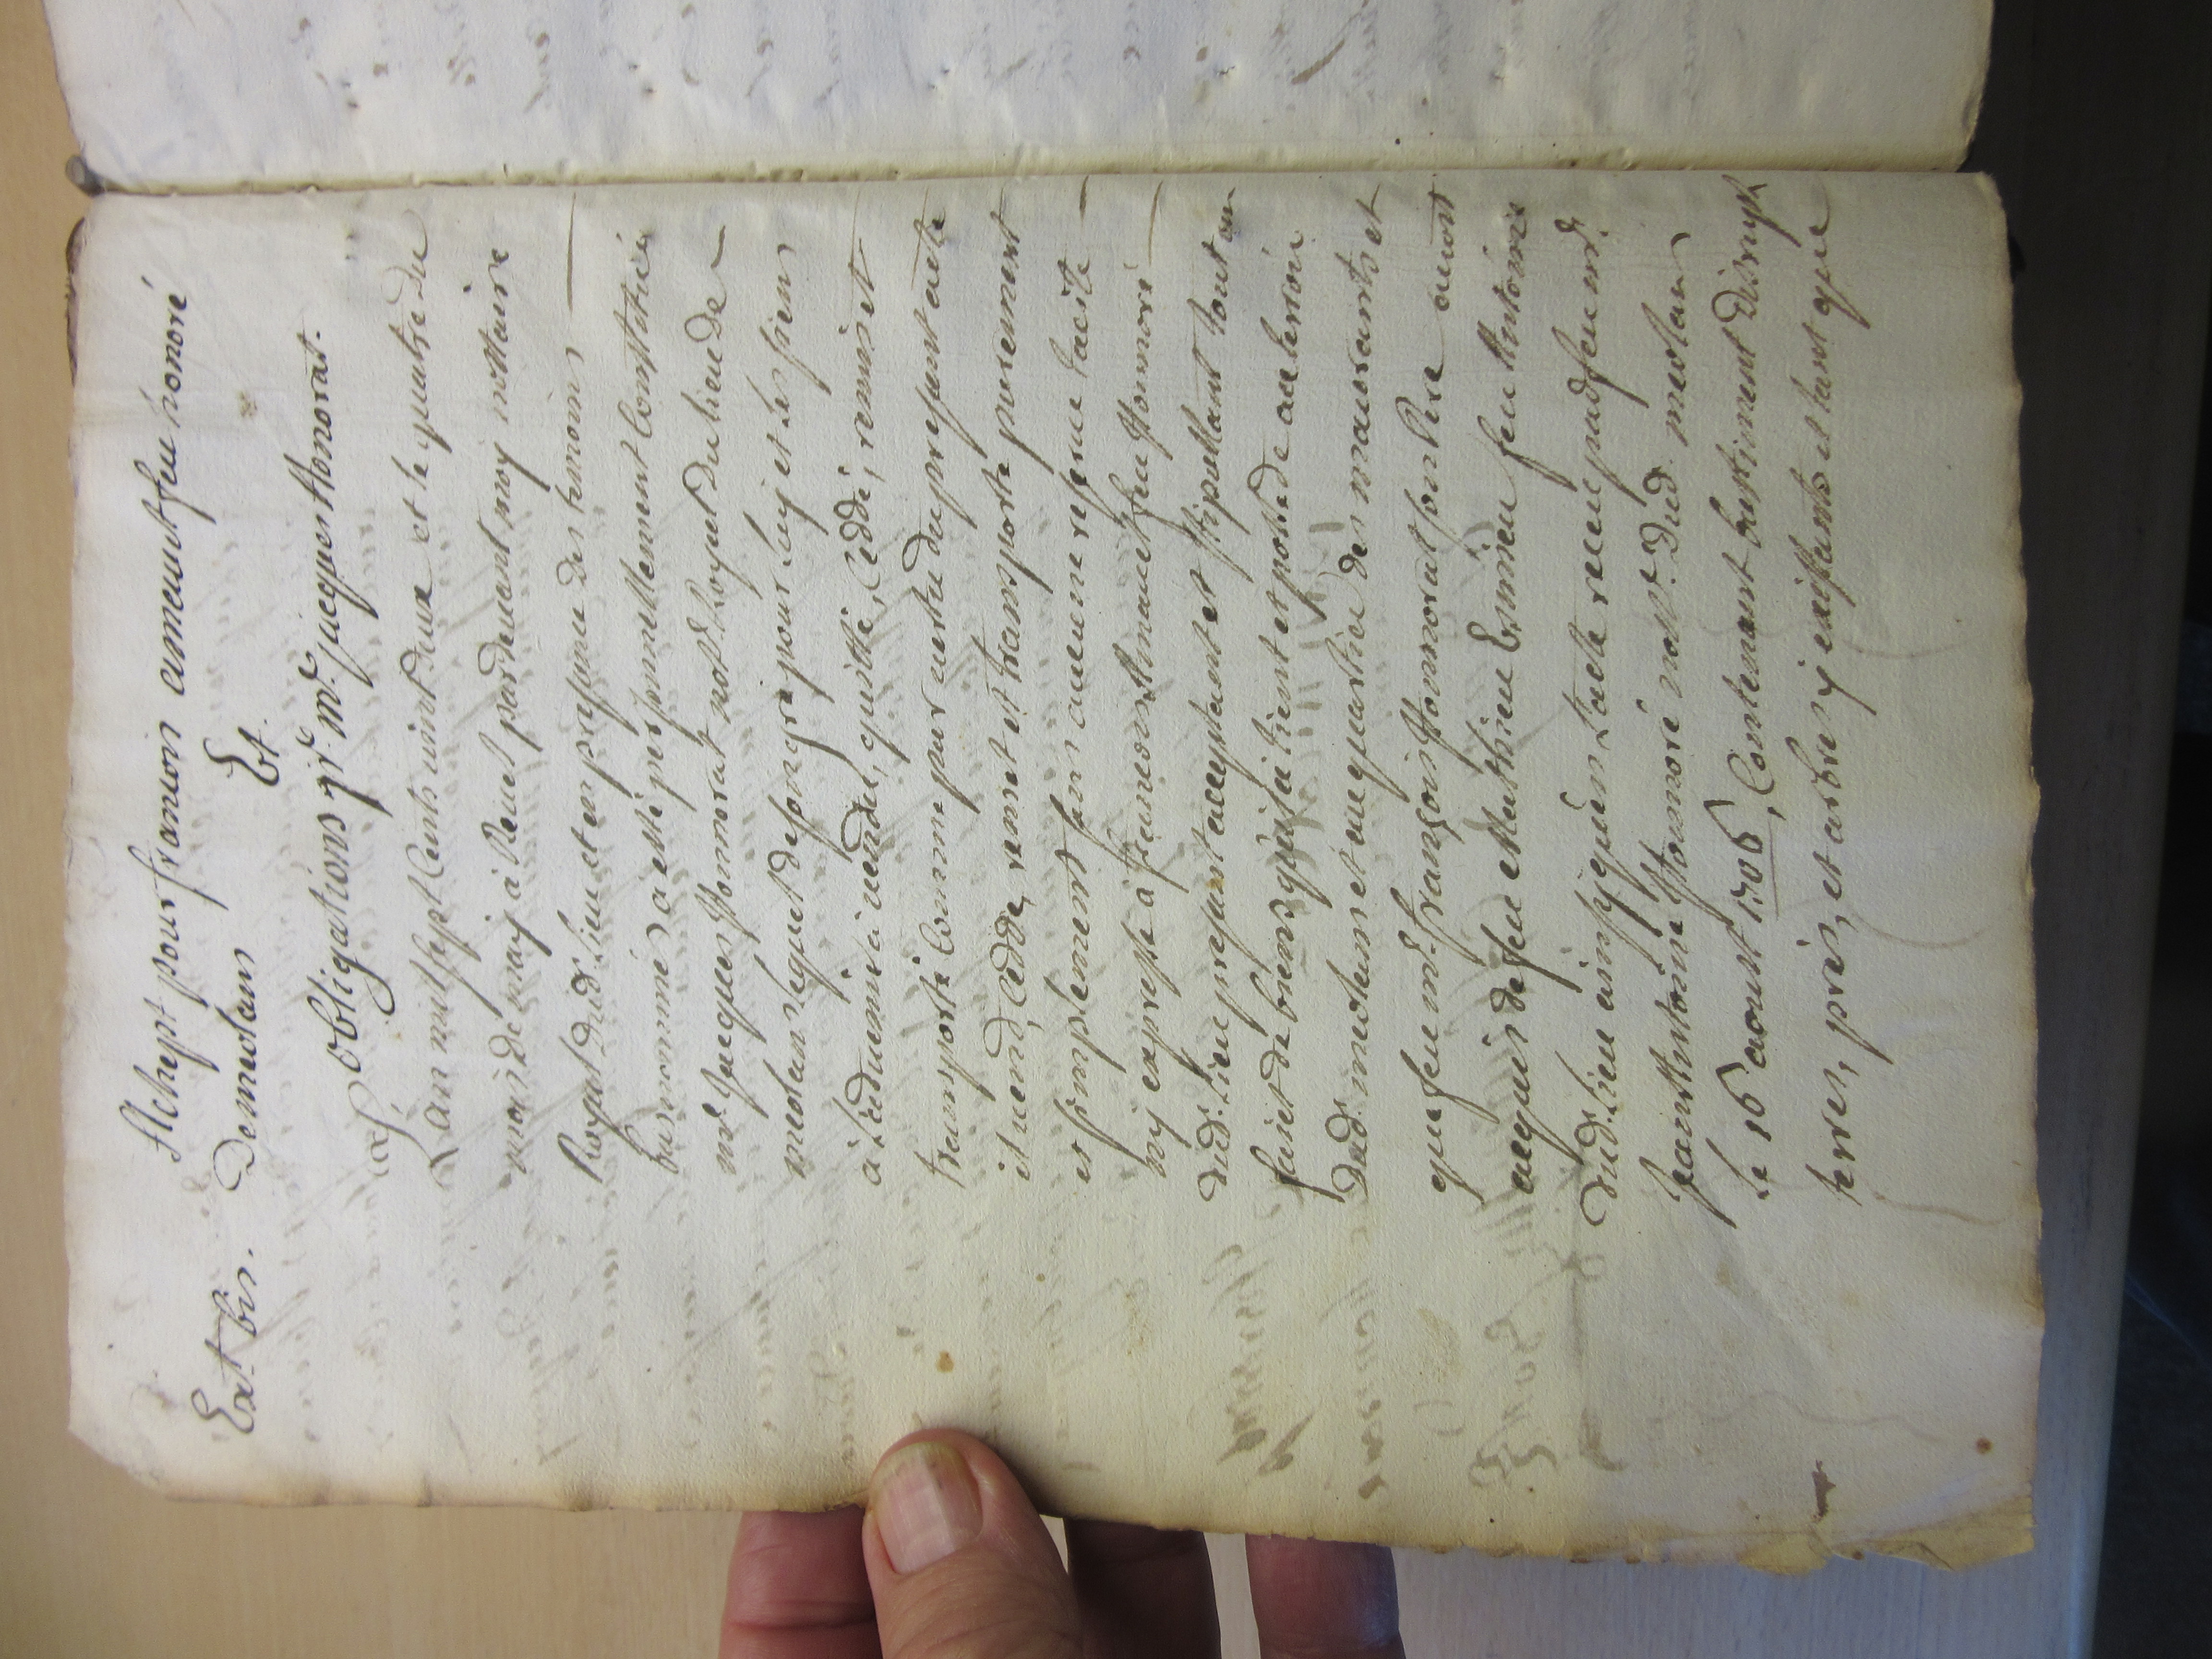 Achept pour francois ameaut feu honoré
Ext bis. De meolans
Et
Obligations pr. me. jacques Honorat.
L'an mil sept Cents vint deux et le quatre du
mois de may à Revel pardevant moy nottaire
Royal dud. lieu et en presence des temoins
bas nommés a esté personnellement Constitué
mr. Jacques Honnorat notre. Royal du lieu de
meolans lequel de son gré pour luy et les siens
à l'advenir a vendu, quitté, Cedde, remis et
transporte Comme par vertu du present acte
il vend, Cedde, remet et transporte purement
et simplement sans aucune reserue tacite
ny expresse à francois Ameaut feu Honnoré
dud. lieu present acceptant et stipullant tout un
faict de biens qu'il a tient et possede au terroir
dud. meolans et au quartier des maurants et
que feu mr. françois Honnorat son Pere auoit
acquis de feu Mathieu Esmieu feu Anthoine
dud. lieu ainsy qu'en l'acte receu par feu mr.
Jean Anthoine Honnoré nottre. dud. meolans
le 16 aoust 1706, Contenant bastiment desrupt
terres, prés, et arbres y existants et tant que